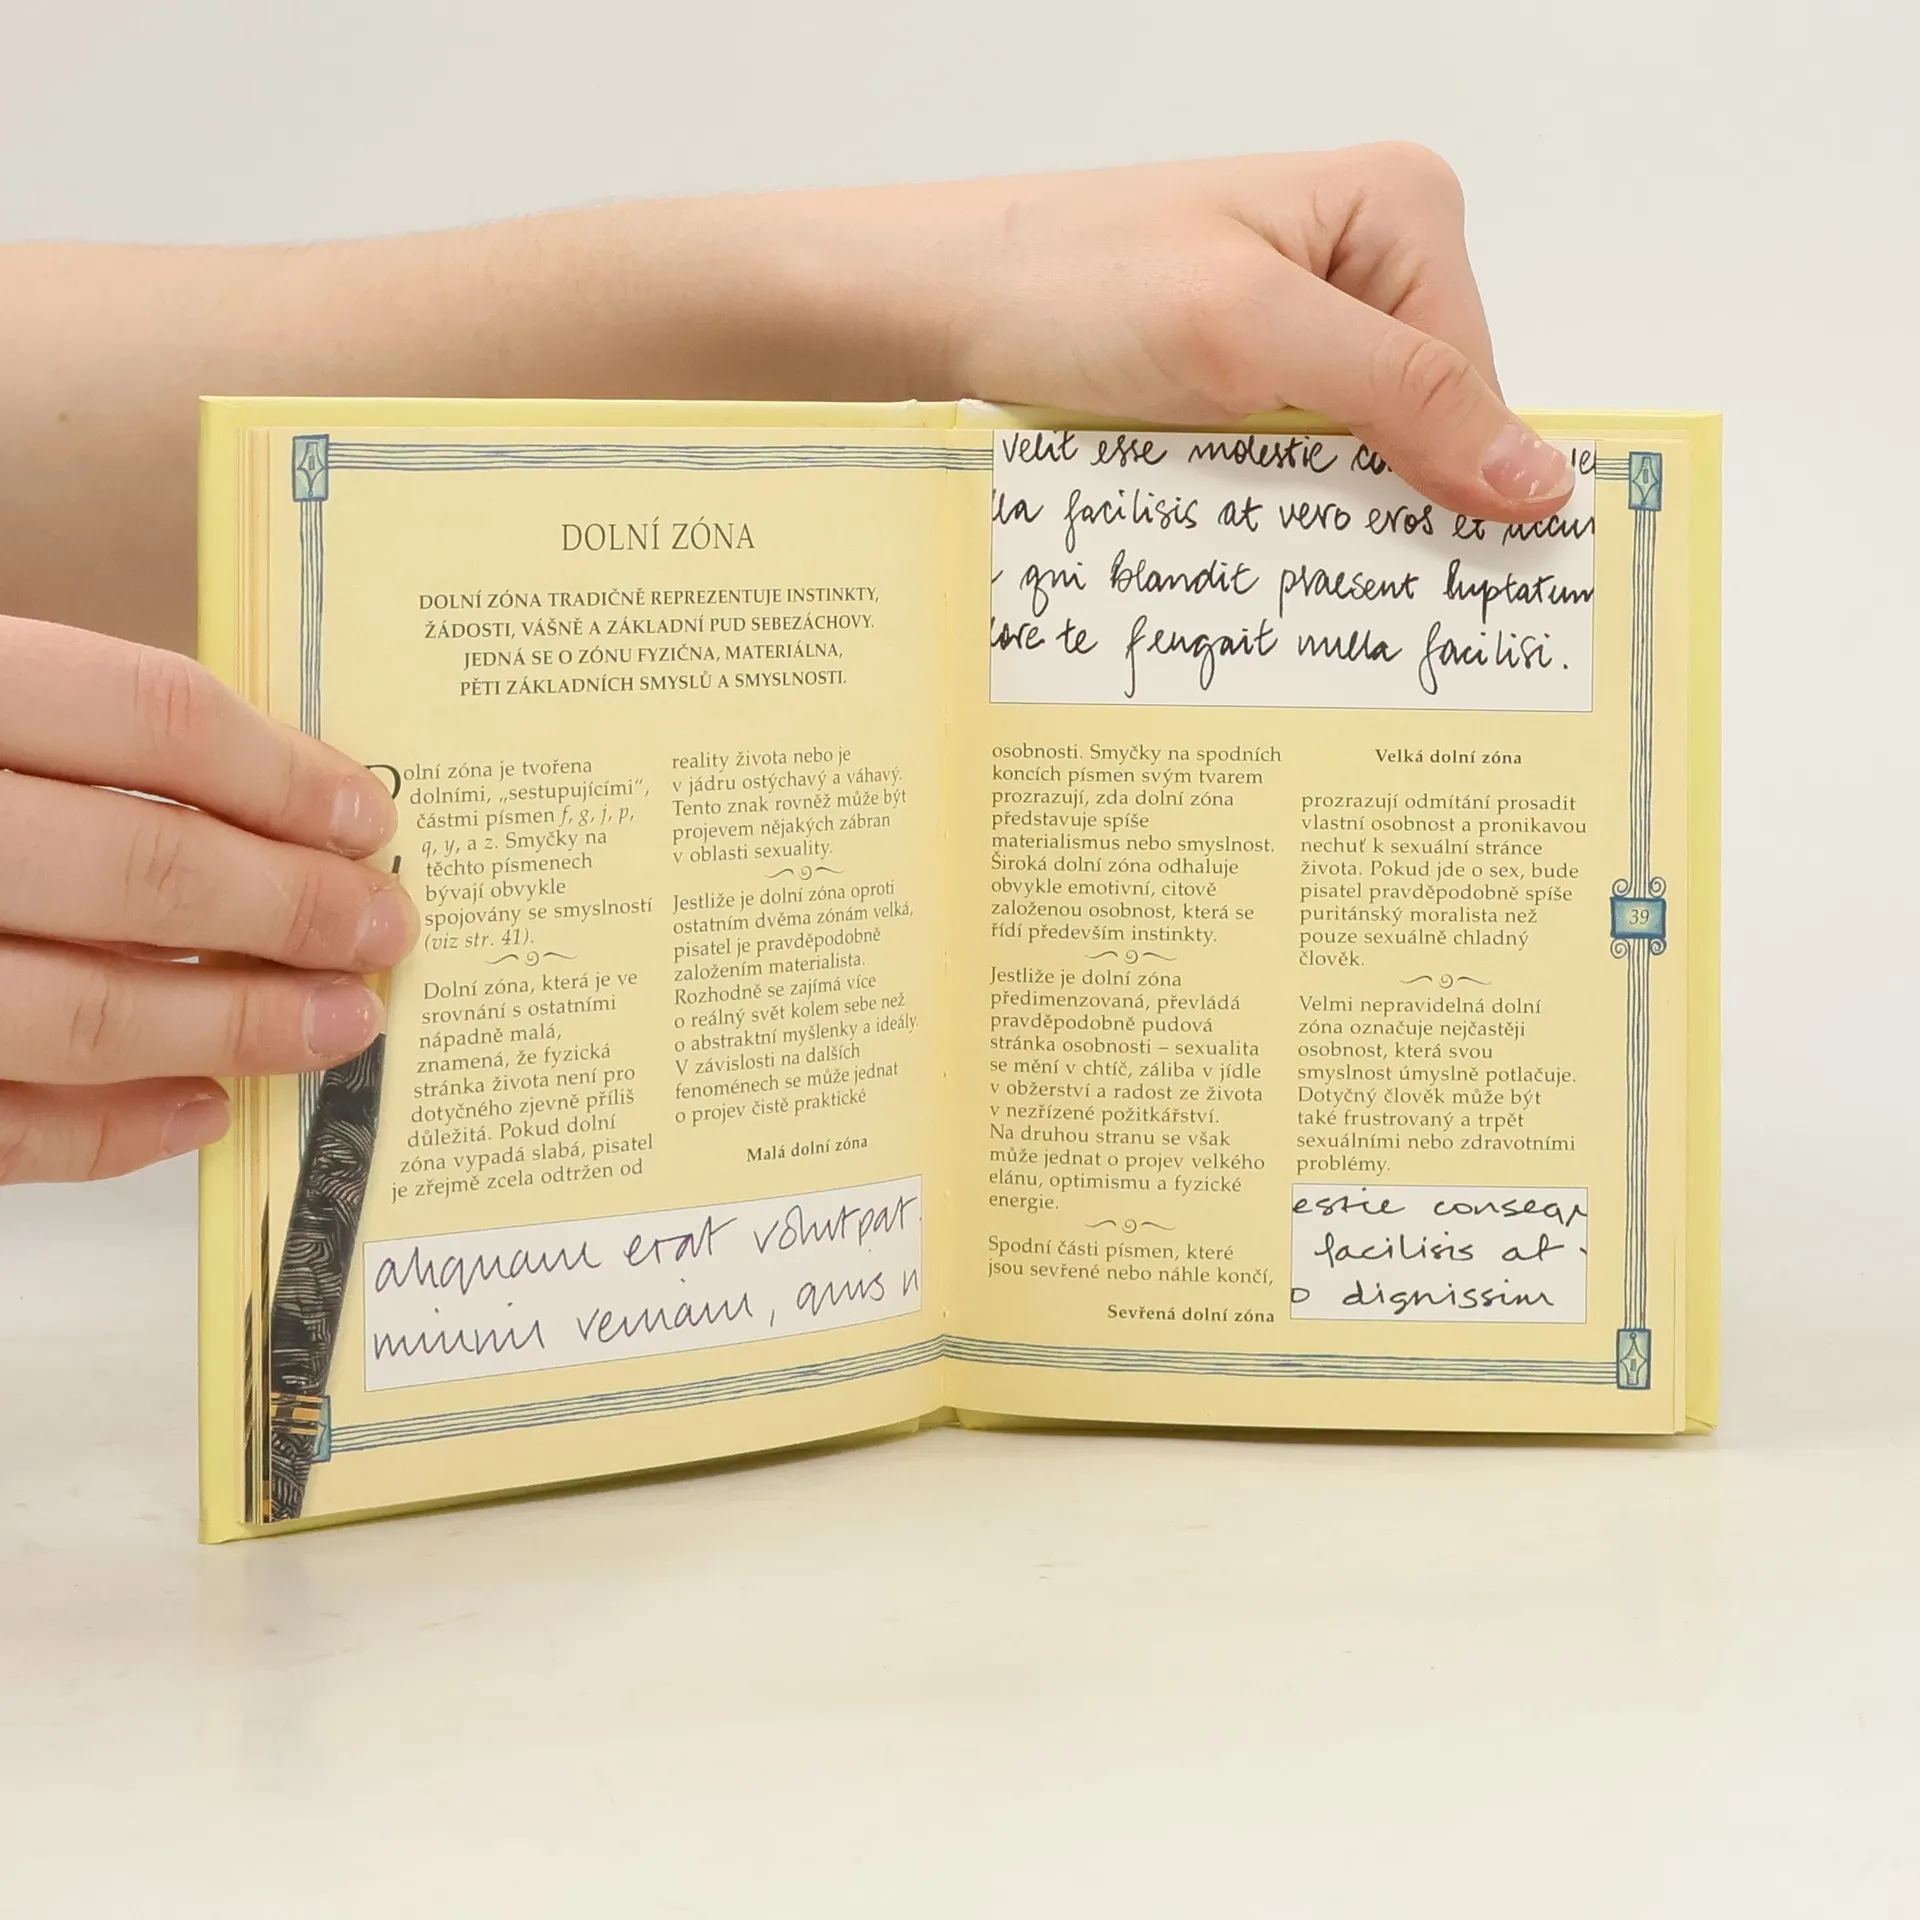 DOLNÍ ZÓNA
DOLNÍ ZÓNA TRADIČNĚ REPREZENTUJE INSTINKTY,
ŽÁDOSTI, VÁŠNĚ A ZÁKLADNÍ PUD SEBEZÁCHOVY.
JEDNÁ SE O ZÓNU FYZIČNA, MATERIÁLNA,
PĚTI ZÁKLADNÍCH SMYSLŮ A SMYSLNOSTI.
Dolní zóna je tvořena
dolními, „sestupujícími“,
částmi písmen f, g, j, p,
q, y, a z. Smyčky na
těchto písmenech
bývají obvykle
spojovány se smyslností
(viz str. 41).
Dolní zóna, která je ve
srovnání s ostatními
nápadně malá,
znamená, že fyzická
stránka života není pro
dotyčného zjevně příliš
důležitá. Pokud dolní
zóna vypadá slabá, pisatel
je zřejmě zcela odtržen od
reality života nebo je
v jádru ostýchavý a váhavý.
Tento znak rovněž může být
projevem nějakých zábran
v oblasti sexuality.
Jestliže je dolní zóna oproti
ostatním dvěma zónám velká,
pisatel je pravděpodobně
založením materialista.
Rozhodně se zajímá více
o reálný svět kolem sebe než
o abstraktní myšlenky a ideály.
V závislosti na dalších
fenoménech se může jednat
o projev čistě praktické
Malá dolní zóna
aliquam erat volutpat.
minim veniam, quis n
velit esse molestie co
lla facilisis at vero eros et accum
qui blandit praesent luptatum
lore te feugait nulla facilisi.
osobnosti. Smyčky na spodních
koncích písmen svým tvarem
prozrazují, zda dolní zóna
představuje spíše
materialismus nebo smyslnost.
Široká dolní zóna odhaluje
obvykle emotivní, citově
založenou osobnost, která se
řídí především instinkty.
Jestliže je dolní zóna
předimenzovaná, převládá
pravděpodobně pudová
stránka osobnosti – sexualita
se mění v chtíč, záliba v jídle
v obžerství a radost ze života
v nezřízené požitkářství.
Na druhou stranu se však
může jednat o projev velkého
elánu, optimismu a fyzické
energie.
Spodní části písmen, které
jsou sevřené nebo náhle končí,
Sevřená dolní zóna
Velká dolní zóna
prozrazují odmítání prosadit
vlastní osobnost a pronikavou
nechuť k sexuální stránce
života. Pokud jde o sex, bude
pisatel pravděpodobně spíše
puritánský moralista než
pouze sexuálně chladný
člověk.
Velmi nepravidelná dolní
zóna označuje nejčastěji
osobnost, která svou
smyslnost úmyslně potlačuje.
Dotyčný člověk může být
také frustrovaný a trpět
sexuálními nebo zdravotními
problémy.
estie consequ
facilisis at
o dignissim
39